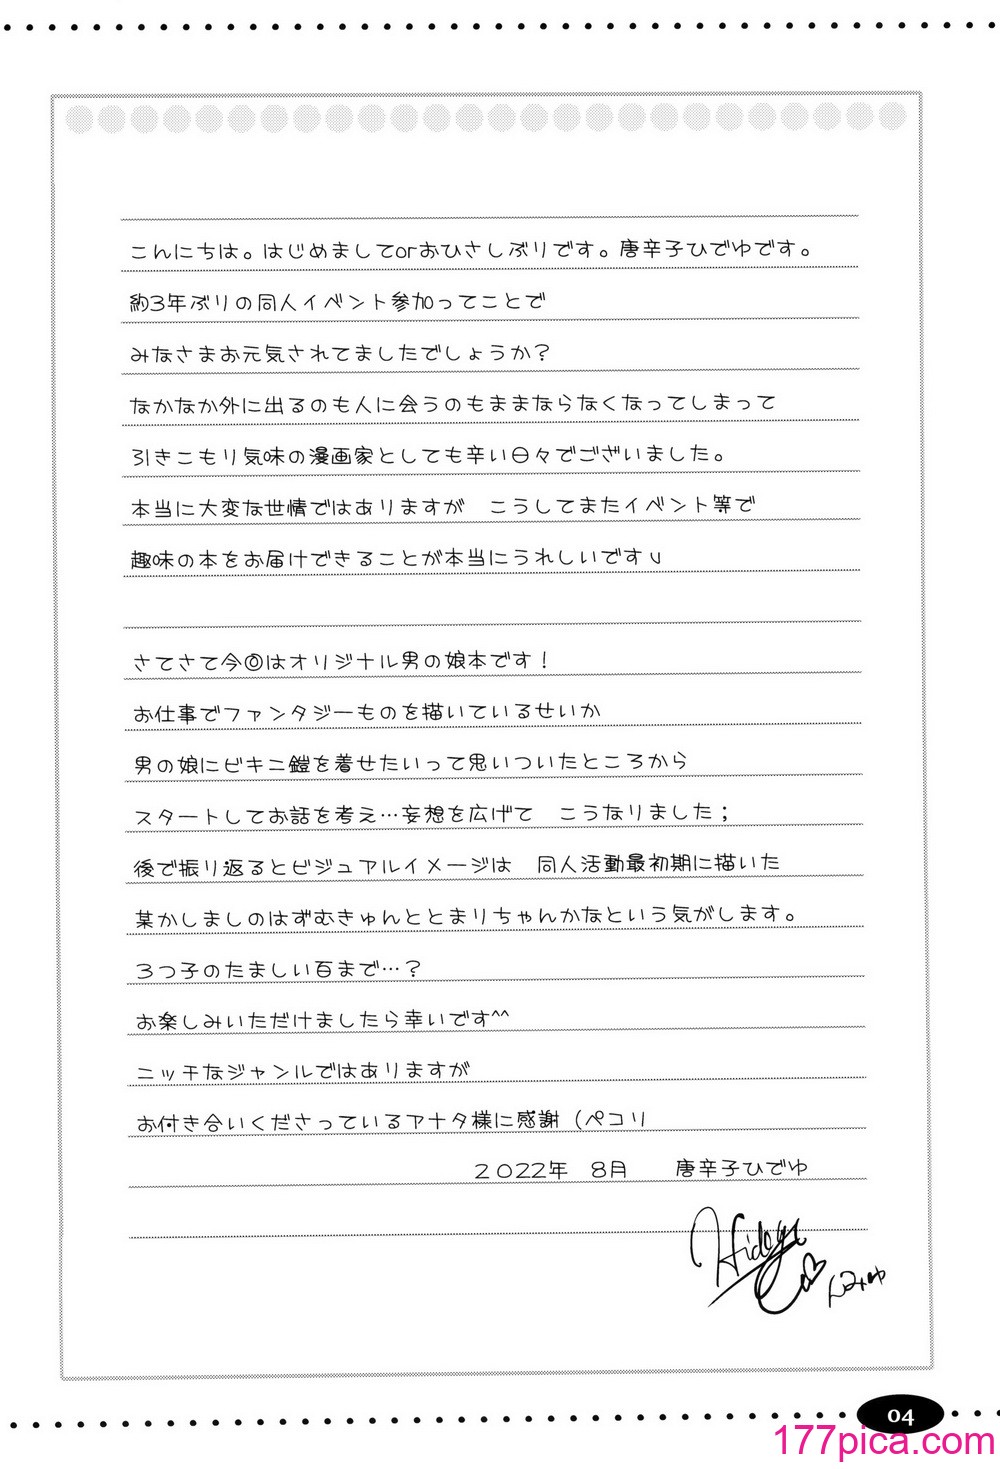 こんにちは。はじめましてorおひさしぶりです。唐辛子ひでゆです。
約3年ぶりの同人イベント参加ってことで
みなさまお元気されてましたでしょうか？
なかなか外に出るのも人に会うのもままならなくなってしまって
引きこもり気味の漫画家としても辛い日々でございました。
本当に大変な世情ではありますが　こうしてまたイベント等で
趣味の本をお届けできることが本当にうれしいです
さてさて今回はオリジナル男の娘本です！
お仕事でファンタジーものを描いているせいか
男の娘にビキニ鎧を着せたいって思いついたところから
スタートしてお話を考え…妄想を広げて　こうなりました；
後で振り返るとビジュアルイメージは　同人活動最初期に描いた
某かしましのはずむきゅんととまりちゃんかなという気がします。
３つ子のたましい百まで…？
お楽しみいただけましたら幸いです^^
ニッチなジャンルではありますが
お付き合いくださっているアナタ様に感謝（ペコリ
２０２２年　８月　　唐辛子ひでゆ
Hideyu
04
177pica.com